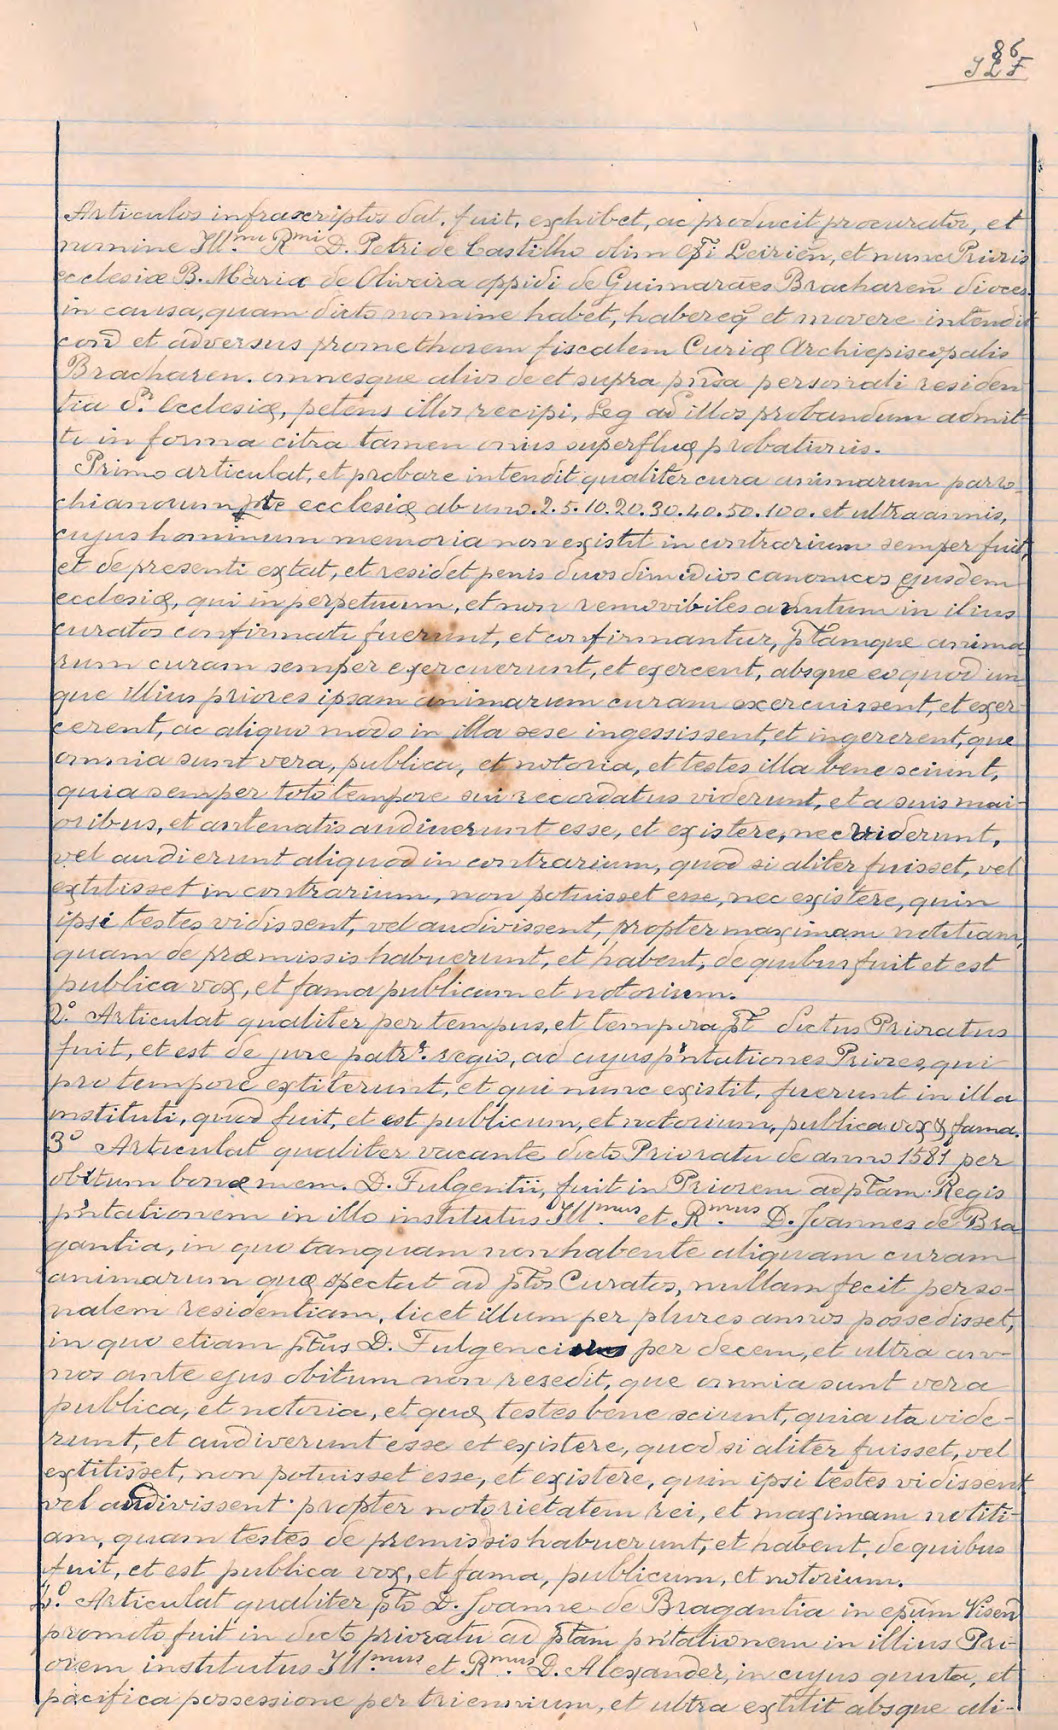 86
JLF
Articulos infrascriptos dat. fuit, exhibet, ac producit procurator, et
nomine Ill.mi Rmi D. Petri de Castilho olim Epi Leirien, et nunc Prioris
ecclesiæ B. Mariæ de Oliveira oppidi de Guimarães Bracharen dioces.
in causa, quam dicto nomine habet, habereq et movere intendit
con et adversus promothorem fiscalem Curiæ Archiepiscopalis
Bracharen. omnesque alios de et supra pnsa personali residen
tia d. Ecclesiæ, petens illos recipi, seq ad illos probandum admit-
ti in forma citra tamen onus superfluæ probationis.
Primo articulat, et probare intendit qualiter cura animarum parro-
chianorum pte ecclesiæ ab uno.2.5.10.20.30.40.50.100. et ultra annis,
cujus hominum memoria non existit in contrarium semper fuit,
et de presenti extat, et residet penis duos dimidios canonicos ejusdem
ecclesiæ, qui in perpetuum, et non removibiles ad nutum in ilius
curatos confirmati fuerunt, et confirmantur, ptamque anima
rum curam semper exercuerunt, et exercent, absque eo quod un-
que illius priores ipsam animarum curam exercuissent, et exer-
cerent, ac aliquo modo in illa sese ingessissent, et ingererent, que
omnia sunt vera, publica, et notoria, et testes illa bene sciunt,
quia semper toto tempore sui recordatus viderunt, et a suis mai-
oribus, et antenatis audiuerunt esse, et existere, nec viderunt,
vel audierunt aliquod in contrarium, quod si aliter fuisset, vel
extitisset in contrarium, non potuisset esse, nec existere, quin
ipsi testes vidissent, vel audivissent, propter maximam notitiam,
quam de præmissis habuerunt, et habent, de quibus fuit et est
publica vox, et fama publicum et notorium.
2.º Articulat qualiter per tempus, et tempora pt dictus Prioratus
fuit, et est de jure patr.s regio, ad cujus pntationes Priores, qui
pro tempore extiterunt, et qui nunc existit, fuerunt in illa
instituti, quod fuit, et est publicum, et notorium, publica vox & fama.
3º Articulat qualiter vacante dicto Prioratu de anno 1581 per
obitum bonæ mem. D. Fulgentii, fuit in Priorem ad ptam Regis
pntationem in illo institutus Ill.mus et R.mus D. Joannes de Bra
gantia, in quo tanquam non habente aliquam curam
animarum quæ spectat ad ptos Curatos, nullam fecit perso-
nalem residentiam, licet illum per plures annos possedisset,
in quo etiam ptus D. Fulgencius per decem, et ultra an-
nos ante ejus obitum non resedit, que omnia sunt vera
publica, et notoria, et quæ testes bene sciunt, quia ita vide-
runt, et audiverunt esse et existere, quod si aliter fuisset, vel
extitisset, non potuisset esse, et existere, quin ipsi testes vidissent
vel audivissent propter notorietatem rei, et maximam notiti-
am, quam testes de premissis habuerunt, et habent, de quibus
fuit, et est publica vox, et fama, publicum, et notorium.
4.º Articulat qualiter pto D. Joanne de Bragantia in epum Visen
promoto fuit in dicto prioratu ad ptam pntationem in illius Pri-
orem institutus Ill.mus et R.mus D. Alexander, in cujus quieta, et
pacifica possessione per triennium, et ultra extitit absque ali-